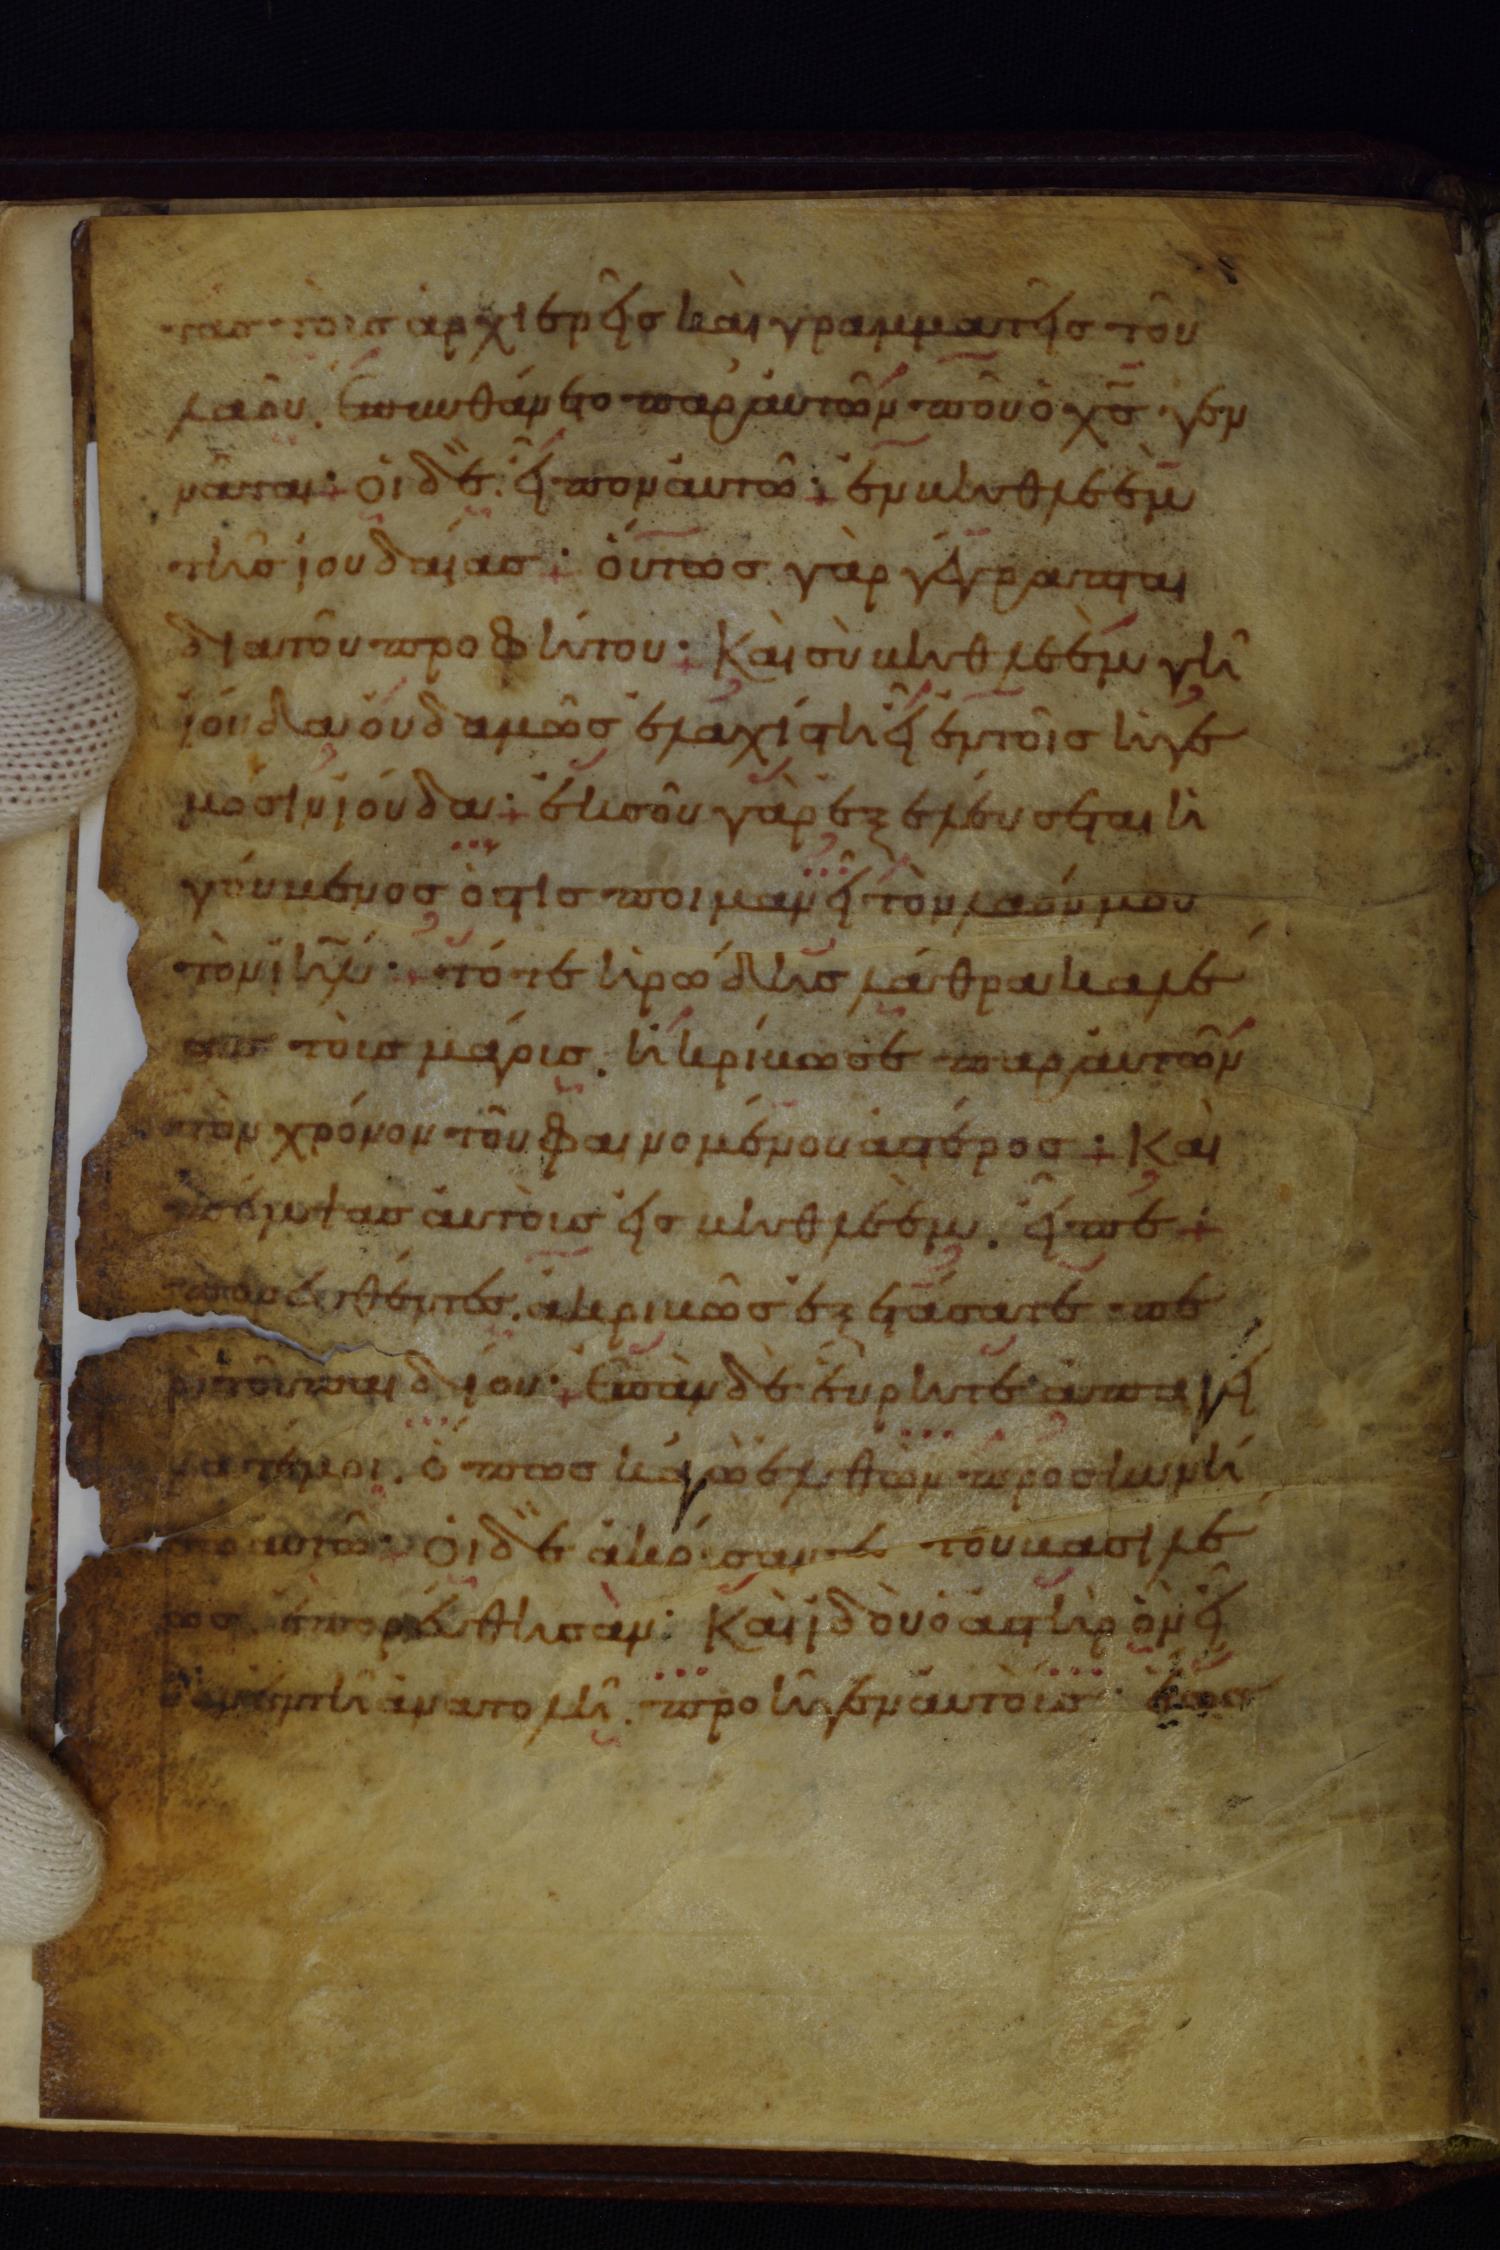 τασ τοὺσ ἀρχιερεῖσ καὶ γραμματεῖσ τοῦ
λαοῦ. ἐπυνθάνετο παρ' ἀυτῶν ποῦ ὁ χ̅σ̅ γεν
νᾶται: ὁι δὲ εἶπον ἀυτῶ: ἐν βηθλεὲμ
τῆσ ἰουδαίασ: ὅυτωσ γὰρ γέγραπται
διὰ τοῦ προφήτου: Καὶ σὺ βηθλεὲμ γῆ
ἰούδα ὀυδαμῶσ ἐλαχίστη εἶ ἐν τοῖσ ἡγε
μόσιν ἰούδα: ἐκ σοῦ γὰρ ἐξελέυσεται ἡ
γόυμενοσ ὅστισ ποιμανεῖ τὸν λαόν μου
τὸν ι̅η̅λ̅: τότε ἡρώδησ λάθρα καλέ
σασ τὸισ μάγισ. ἠκρίβωσε παρ' ἀυτῶν
τὸν χρόνον τοῦ φαινομένου ἀστέροσ: Καὶ
πέμψασ ἀυτὸισ ἐισ βηθλεὲμ. εἶπε:
πορευθέντεσ. ἀκριβῶσ ἐξετάσατε πε
ρὶ τοῦ παιδίου: ἐπὰν δὲ ἕυρητε ἀπαγγεί
λατέ μοι. ὅπωσ κἀγὼ ἐλθὼν προσκυνή
σω αυτῶ: ὁι δὲ ἀκόυσαντεσ του βασιλέ
ωσ ἐπορέυθησαν: Καὶ ἰδὸυ ὁ ἀστὴρ ὃν εἶ
δον ἐν τῆ ἀνατολῆ. προῆγεν ἀυτὸισ: ἕωσ